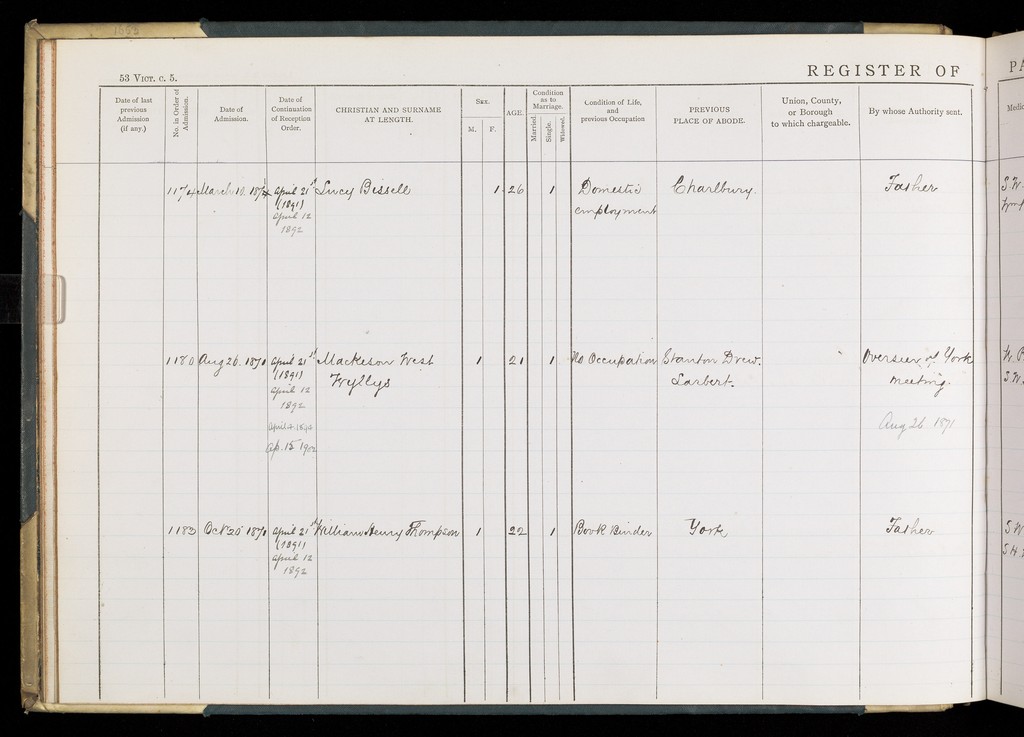 53 VICT. c. 5.
REGISTER OF
PA
Date of last previous Admission (if any.)
No. in Order of Admission.
Date of Admission.
Date of Continuation of Reception Order.
CHRISTIAN AND SURNAME AT LENGTH.
SEX.
M. F.
AGE.
Condition as to Marriage.
Married. Single. Widowed.
Condition of Life, and previous Occupation
PREVIOUS PLACE OF ABODE.
Union, County, or Borough to which chargeable.
By whose Authority sent.
Medic
1174 March 10. 187 April 21st Lucy Bissell 1 26 1 Domestic Charlbury. Father S W
(1891) employment
April 12
1892
1180 Aug 26. 1870 April 21st Mackeson West 1 21 1 No Occupation Stanton Drew. Overseer of York
(1891) Wyllys Larbert. Meeting.
April 12
1892 Aug 26 1871
April 4. 1894
Ap. 15 1902
1183 Oct 20 1870 April 21st William Henry Thompson 1 22 1 Book Binder York Father S W
(1891)
April 12
1892